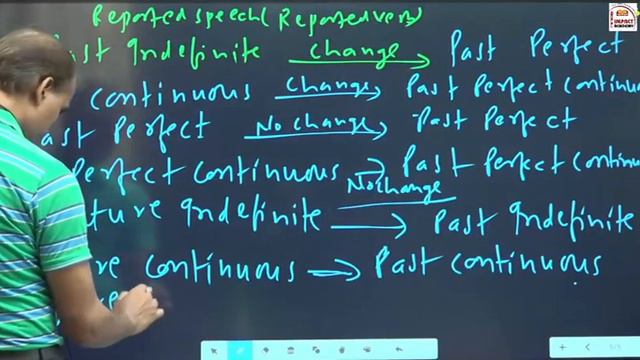 Reported speech ( Reported verb)
Past Indefinite Change Past Perfect
Continuous Change Past Perfect Continuous
Past Perfect No change Past Perfect
Perfect Continuous No change Past Perfect Continuous
Indefinite Past Indefinite
Continuous Past Continuous